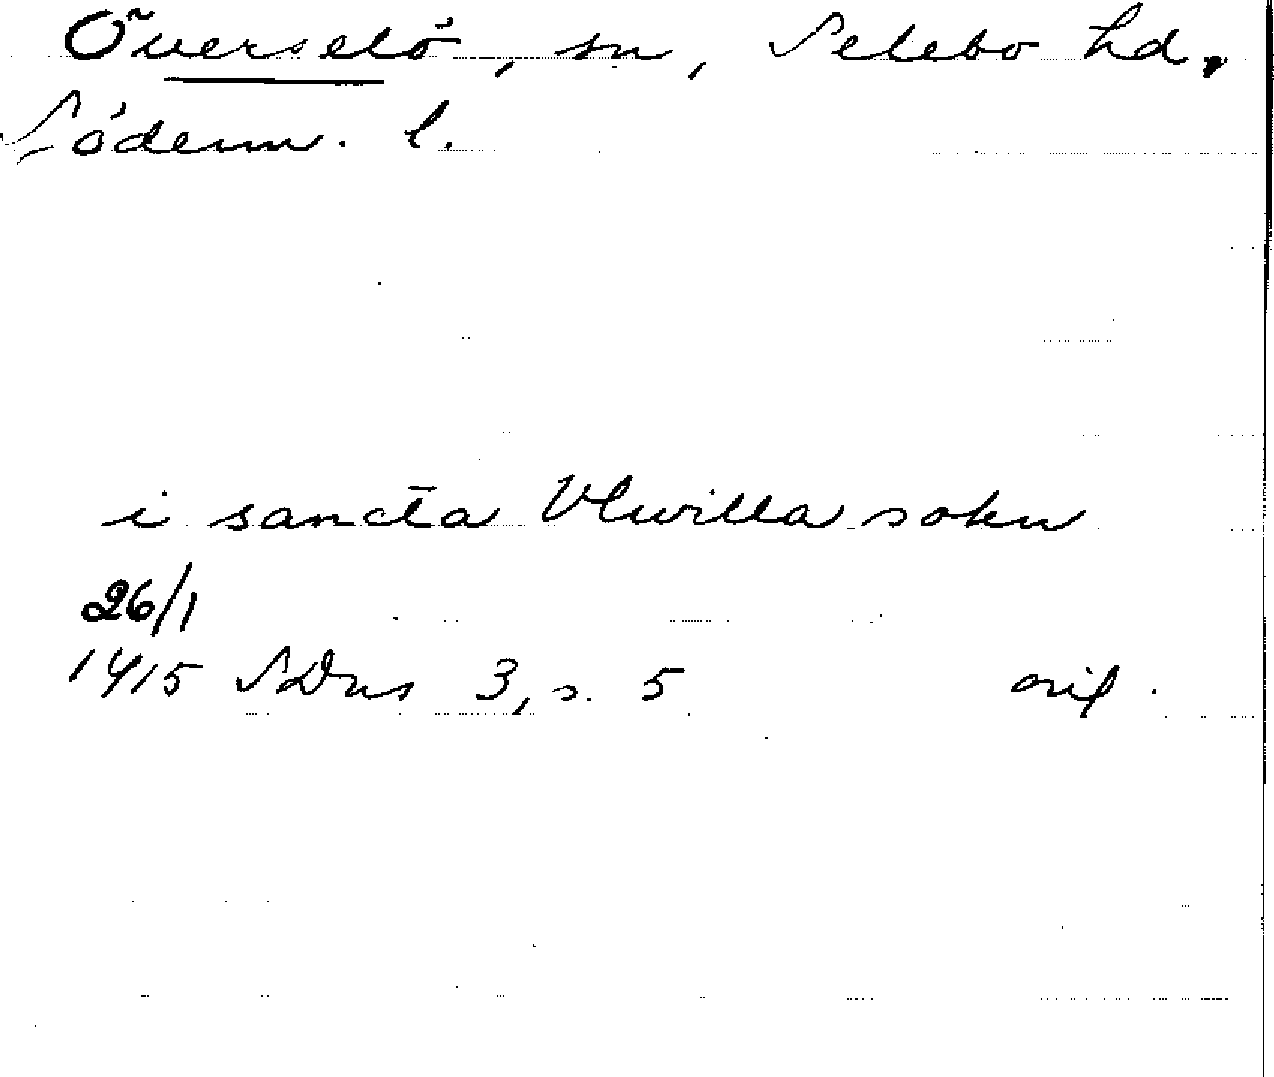 Överselö, sn, Selebo hd,
Söderm. l.
i sancta Vlwilla sokn
26/1
1415 SDns 3, s. 5 orig.